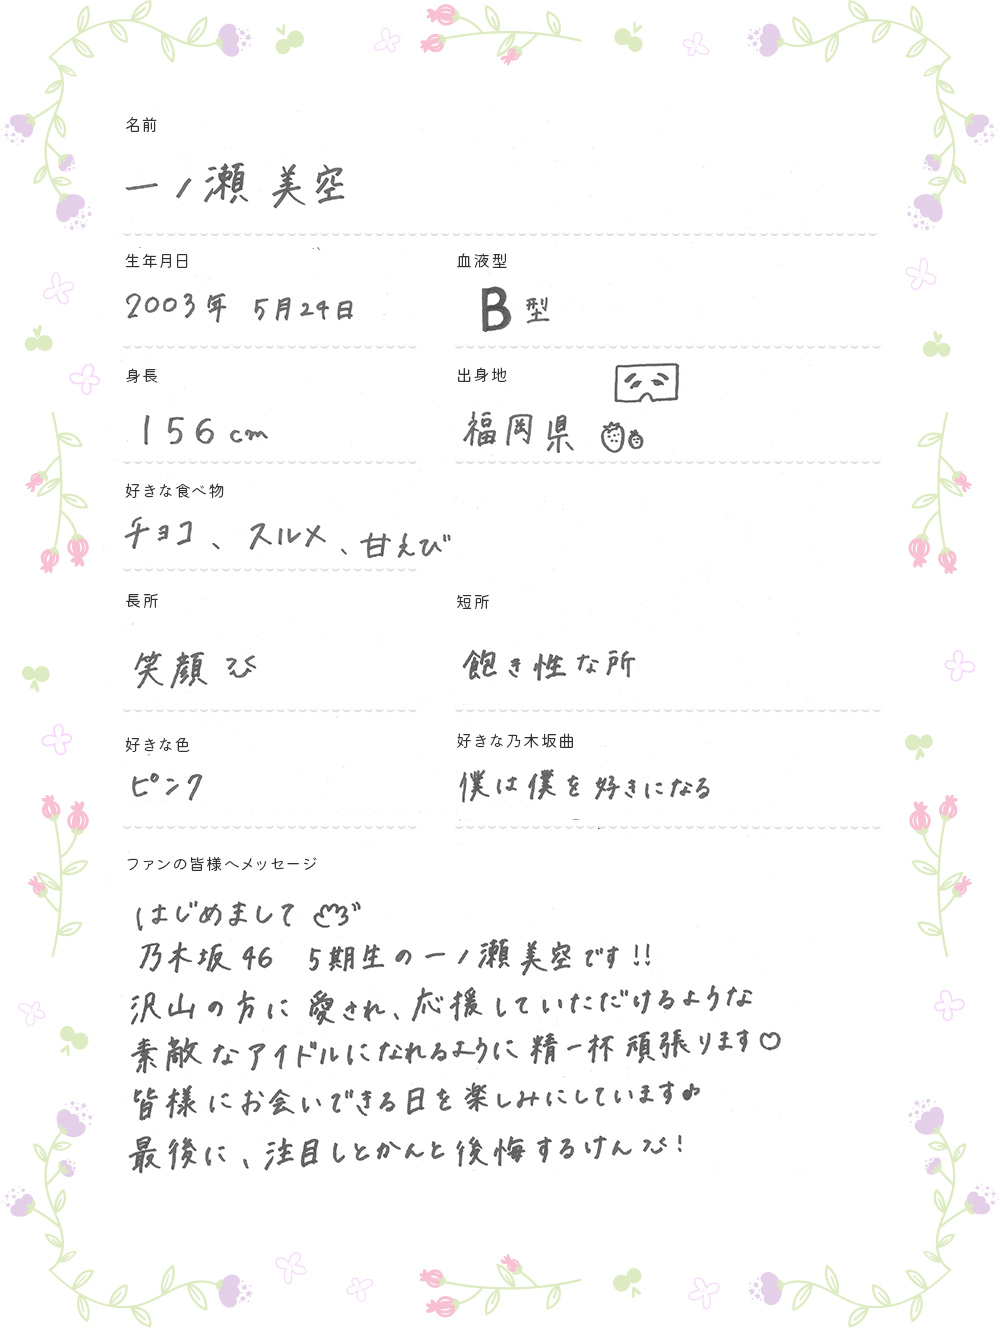 名前
一ノ瀬 美空
生年月日
2003年 5月24日
血液型
B型
身長
156cm
出身地
福岡県
好きな食べ物
チョコ、スルメ、甘えび
長所
笑顔
短所
飽き性な所
好きな色
ピンク
好きな乃木坂曲
僕は僕を好きになる
ファンの皆様へメッセージ
はじめまして
乃木坂46 5期生の一ノ瀬美空です!!
沢山の方に愛され、応援していただけるような
素敵なアイドルになれるように精一杯頑張ります♡
皆様にお会いできる日を楽しみにしています♪
最後に、注目しとかんと後悔するけん!